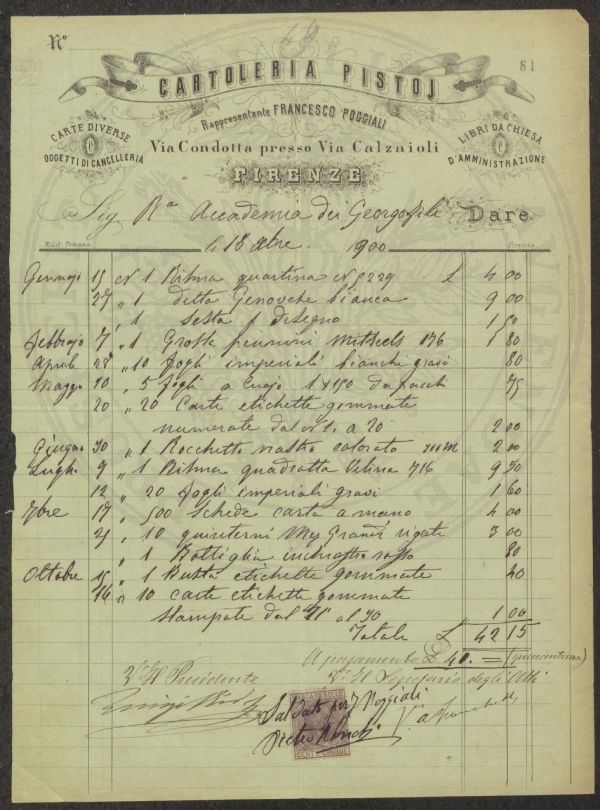 N°
81
CARTOLERIA PISTOJ
Rappresentante FRANCESCO POGGIALI
CARTE DIVERSE
OGGETTI DI CANCELLERIA
Via Condotta presso Via Calzaioli
LIBRI DA CHIESA
D'AMMINISTRAZIONE
FIRENZE
Sig Rª Accademia dei Georgofili Dare
Firenze
li 18 xbre 1900
Gennajo 15 N 1 Risma quartina N 9229 £ 4 00
27 " 1 detta Genovese bianca 9 00
" 1 Sesta 1 disegno 1 50
Febbrajo 7 " 1 Grosse pennini Mitchels 176 1 80
Aprile 28 " 10 fogli imperiali bianchi gravi 80
Maggio 10 " 5 fogli a cuojo 1x150 da pacchi 75
20 " 20 Carte etichette gommate
numerate dal N. 1 a 20 2 00
Giugno 30 " 1 Rocchetto nastro colorato 2 00
Luglio 9 " 1 Risma quadrotta velina 716 9 50
12 " 20 fogli imperiali gravi 1 60
7bre 17 " 500 Schede carta a mano 4 00
21 " 10 quinterni Mez Grandi rigati 3 00
" 1 Bottiglia inchiostro rosso 80
Ottobre 15 " 1 Busta etichette gommate 40
16 " 10 carte etichette gommate
Stampate dal 71 al 90 1 00
Totale £ 42 15
A pagamento £ 41. =
V° Il Presidente
V° Il Segretario degli Atti
Saldato per F Poggiali
MARCA DA BOLLO
Pietro
CENT. CINQUE